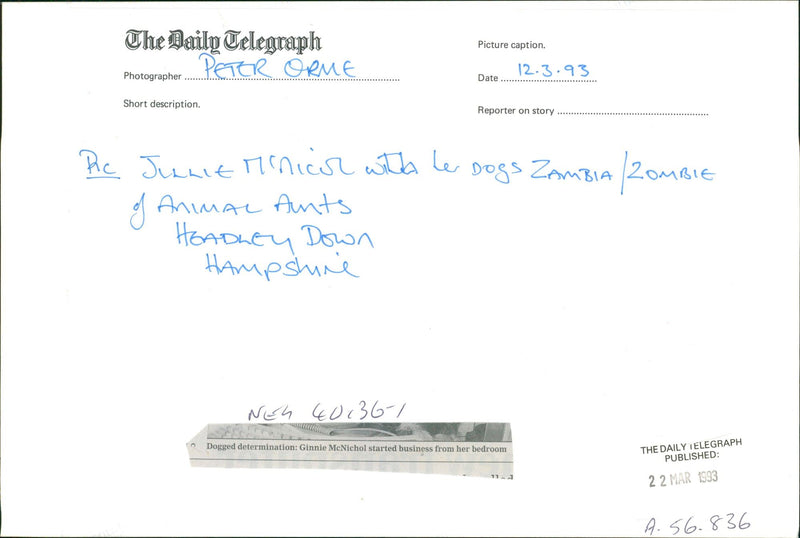 The Daily Telegraph
Picture caption.
Photographer PETER ORME
Date 12.3.93
Short description.
Reporter on story
Pic JULLIE McNICOL with her DOGS ZAMBIA/ZOMBIE
of ANIMAL AUNTS
HEADLEY DOWN
HAMPSHIRE
NEG 40.36-1
Dogged determination: Ginnie McNichol started business from her bedroom
THE DAILY TELEGRAPH
PUBLISHED:
22 MAR 1993
A. 56. 836